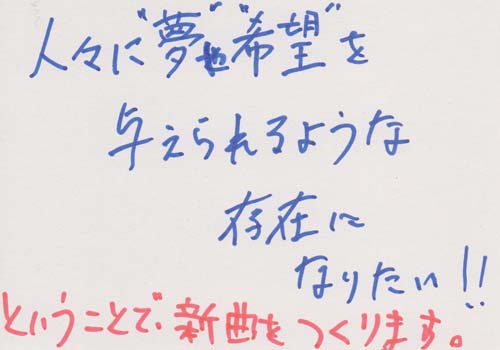 人々に"夢"や"希望"を
与えられるような
存在に
なりたい!!
ということで、新曲をつくります。